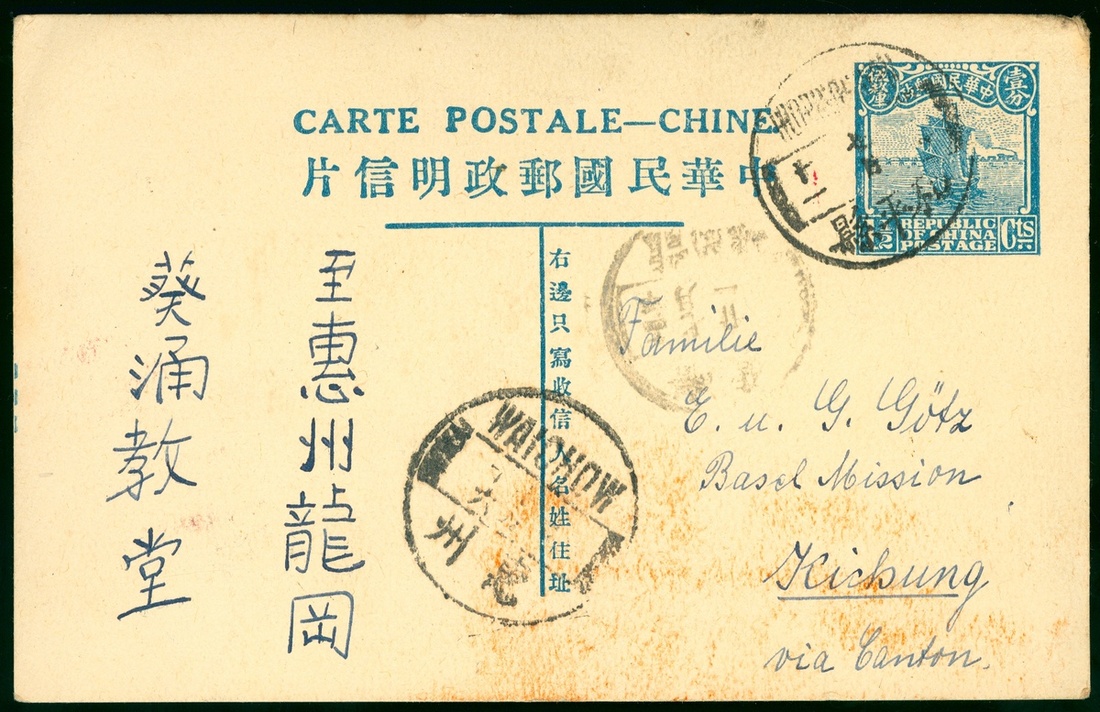 CARTE POSTALE—CHINE
中華民國郵政明信片
中華民國郵政
壹分
REPUBLIC
OF CHINA
POSTAGE
1/2
Cts
右邊只寫收信人名姓住址
至惠州龍岡
葵涌教堂
Familie
E. u. G. Götz
Basel Mission
Kichung
via Canton.
WAICHOW
州